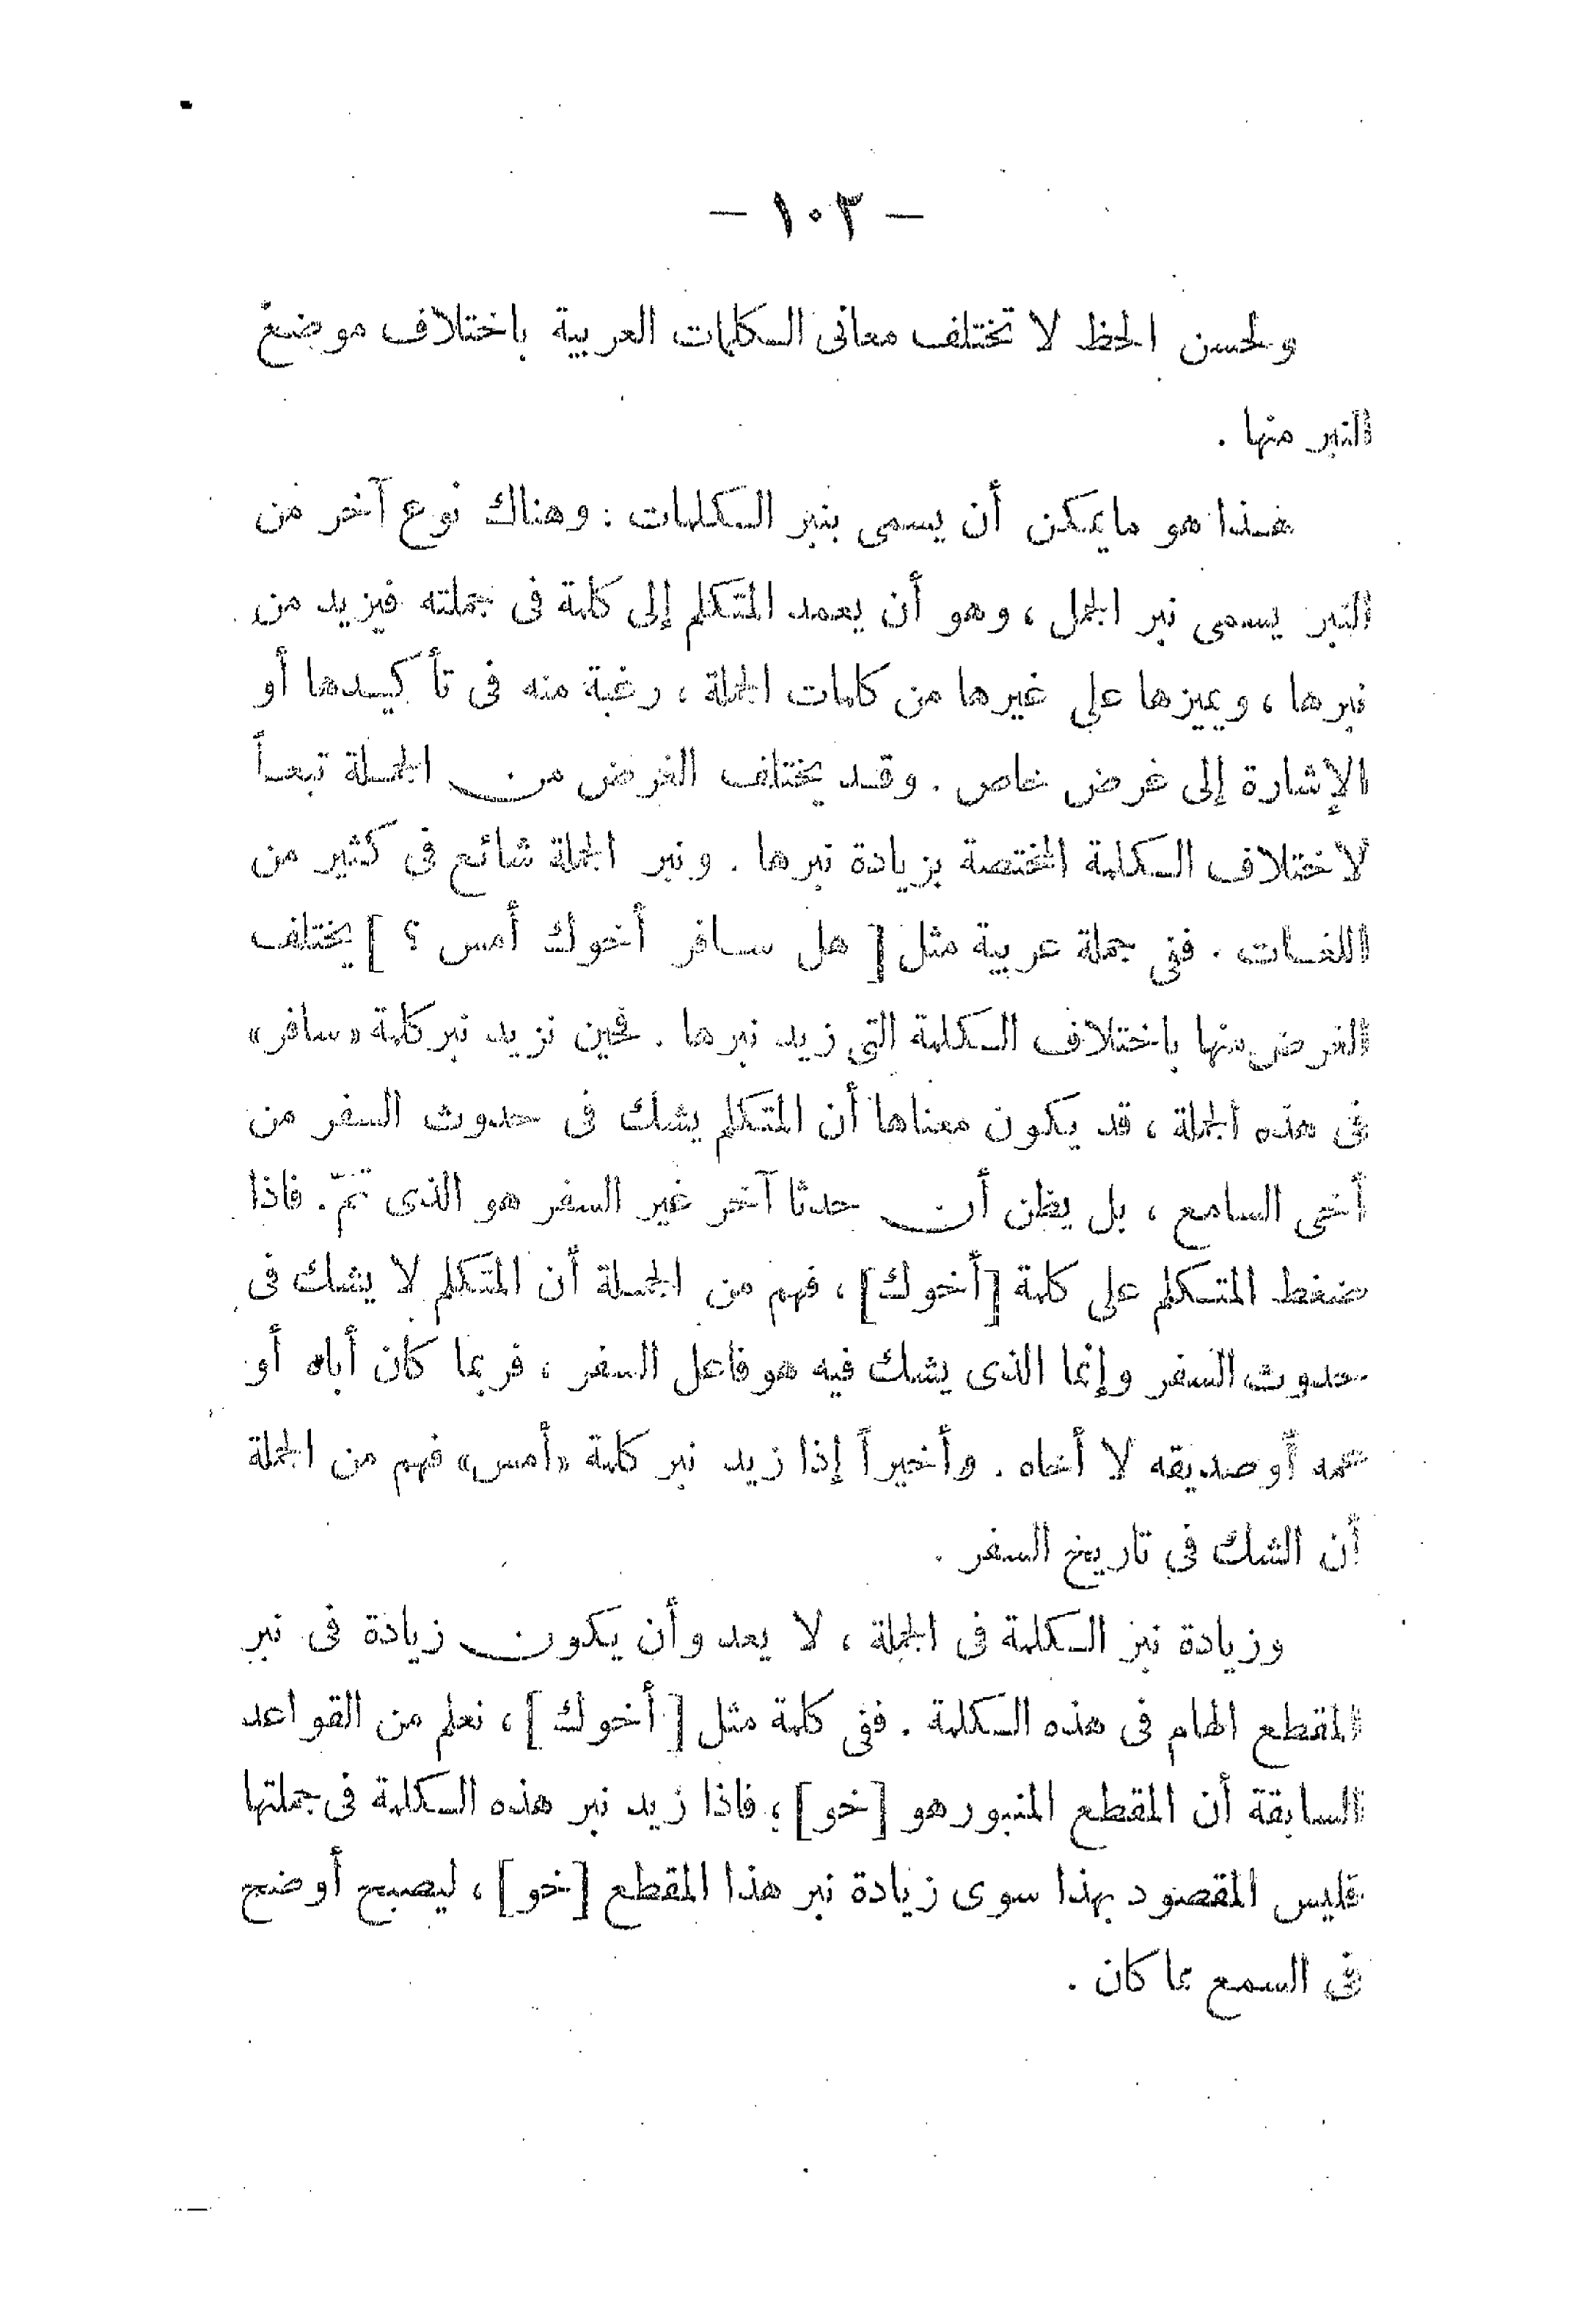 — ١٠٣ —
ولحسن الحظ لا تختلف معانى الكلمات العربية باختلاف موضع
النبر منها .
هذا هو ما يمكن أن يسمى بنبر الكلمات : وهناك نوع آخر من
النبر يسمى نبر الجمل ، وهو أن يعمد المتكلم إلى كلمة فى جملته فيزيد من
نبرها ، ويميزها على غيرها من كلمات الجملة ، رغبة منه فى تأكيدها أو
الإشارة إلى غرض خاص . وقد يختلف الغرض من الجملة تبعاً
لاختلاف الكلمة المختصة بزيادة نبرها . ونبر الجملة شائع فى كثير من
اللغات . ففى جملة عربية مثل [ هل سافر أخوك أمس ؟ ] يختلف
الغرض منها باختلاف الكلمة التى زيد نبرها . فحين نزيد نبر كلمة «سافر»
فى هذه الجملة ، قد يكون معناها أن المتكلم يشك فى حدوث السفر من
أخى السامع ، بل يظن أن حدثا آخر غير السفر هو الذى تمّ . فاذا
ضغط المتكلم على كلمة [أخوك] ، فهم من الجملة أن المتكلم لا يشك فى
حدوث السفر وإنما الذى يشك فيه هو فاعل السفر ، فربما كان أباه أو
عمه أو صديقه لا أخاه . وأخيراً إذا زيد نبر كلمة «أمس» فهم من الجملة
أن الشك فى تاريخ السفر .
وزيادة نبر الكلمة فى الجملة ، لا يعدو أن يكون زيادة فى نبر
المقطع الهام فى هذه الكلمة . ففى كلمة مثل [ أخوك ] ، نعلم من القواعد
السابقة أن المقطع المنبور هو [خو] ؛ فاذا زيد نبر هذه الكلمة فى جملتها
فليس المقصود بهذا سوى زيادة نبر هذا المقطع [خو] ، ليصبح أوضح
فى السمع مما كان .